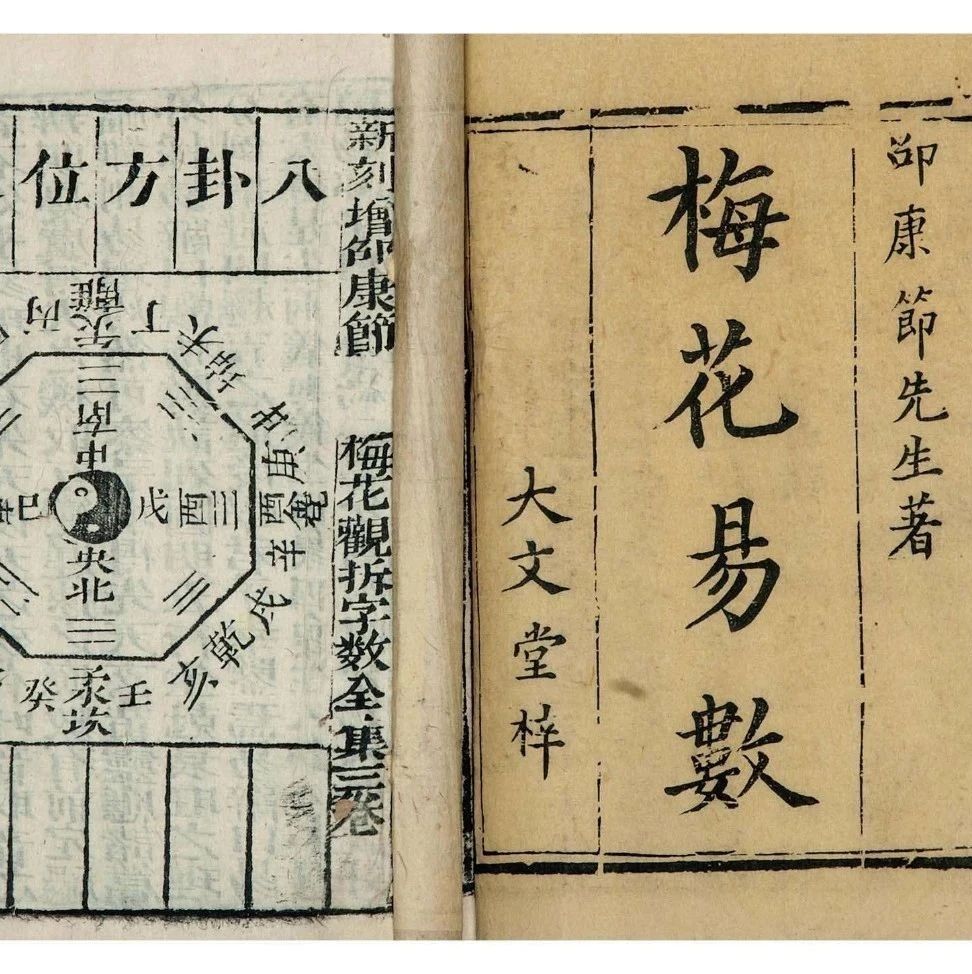 邵康節先生著
梅花易數
大文堂梓
新刻增邵康節 梅花觀拆字數全集三卷
八卦方位
離午
丁
丙
未坤申
庚
兌酉
辛
戌乾亥
壬
子坎
癸
南
中
央
北
戊
己
酉